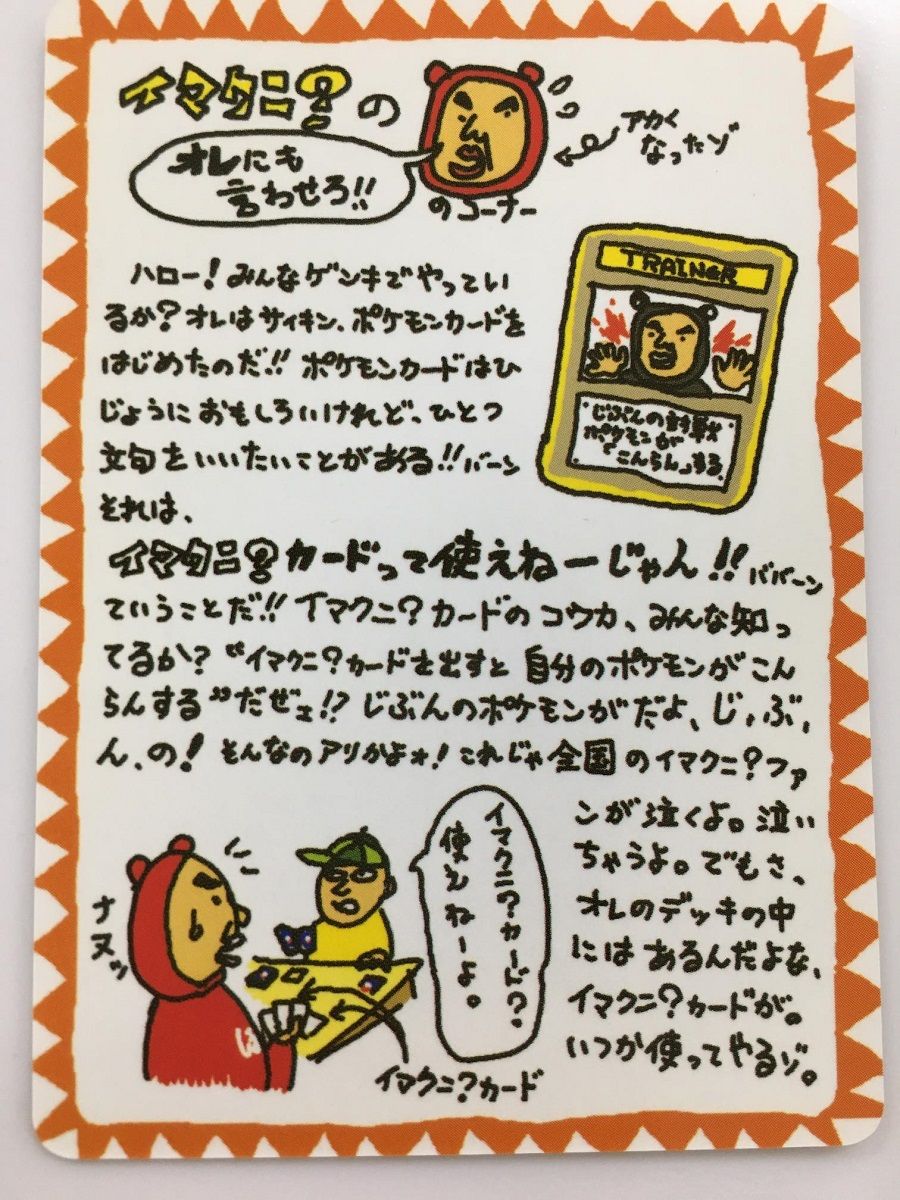 イマクニ？の
オレにも
言わせろ!!
のコーナー
アカく
なったゾ
ハロー！みんなゲンキでやってい
るか？オレはサイキン、ポケモンカードを
はじめたのだ!!ポケモンカードはひ
じょうにおもしろいけれど、ひとつ
文句をいいたいことがある!!バーン
それは、
TRAINER
"じぶんの対戦
ポケモンが
「こんらん」する
イマクニ？カードって使えねーじゃん!!ババーン
ていうことだ!!イマクニ？カードのコウカ、みんな知っ
てるか？“イマクニ？カードを出すと自分のポケモンがこん
らんする”だぜェ!?じぶんのポケモンがだよ、じ、ぶ、
ん、の！そんなのアリかよォ！これじゃ全国のイマクニ？ファ
ンが泣くよ。泣い
ちゃうよ。でもさ、
オレのデッキの中
にはあるんだよな、
イマクニ？カードが。
いつか使ってやるゾ。
イマクニ？カード？
使えねーよ。
ナヌッ
イマクニ？カード